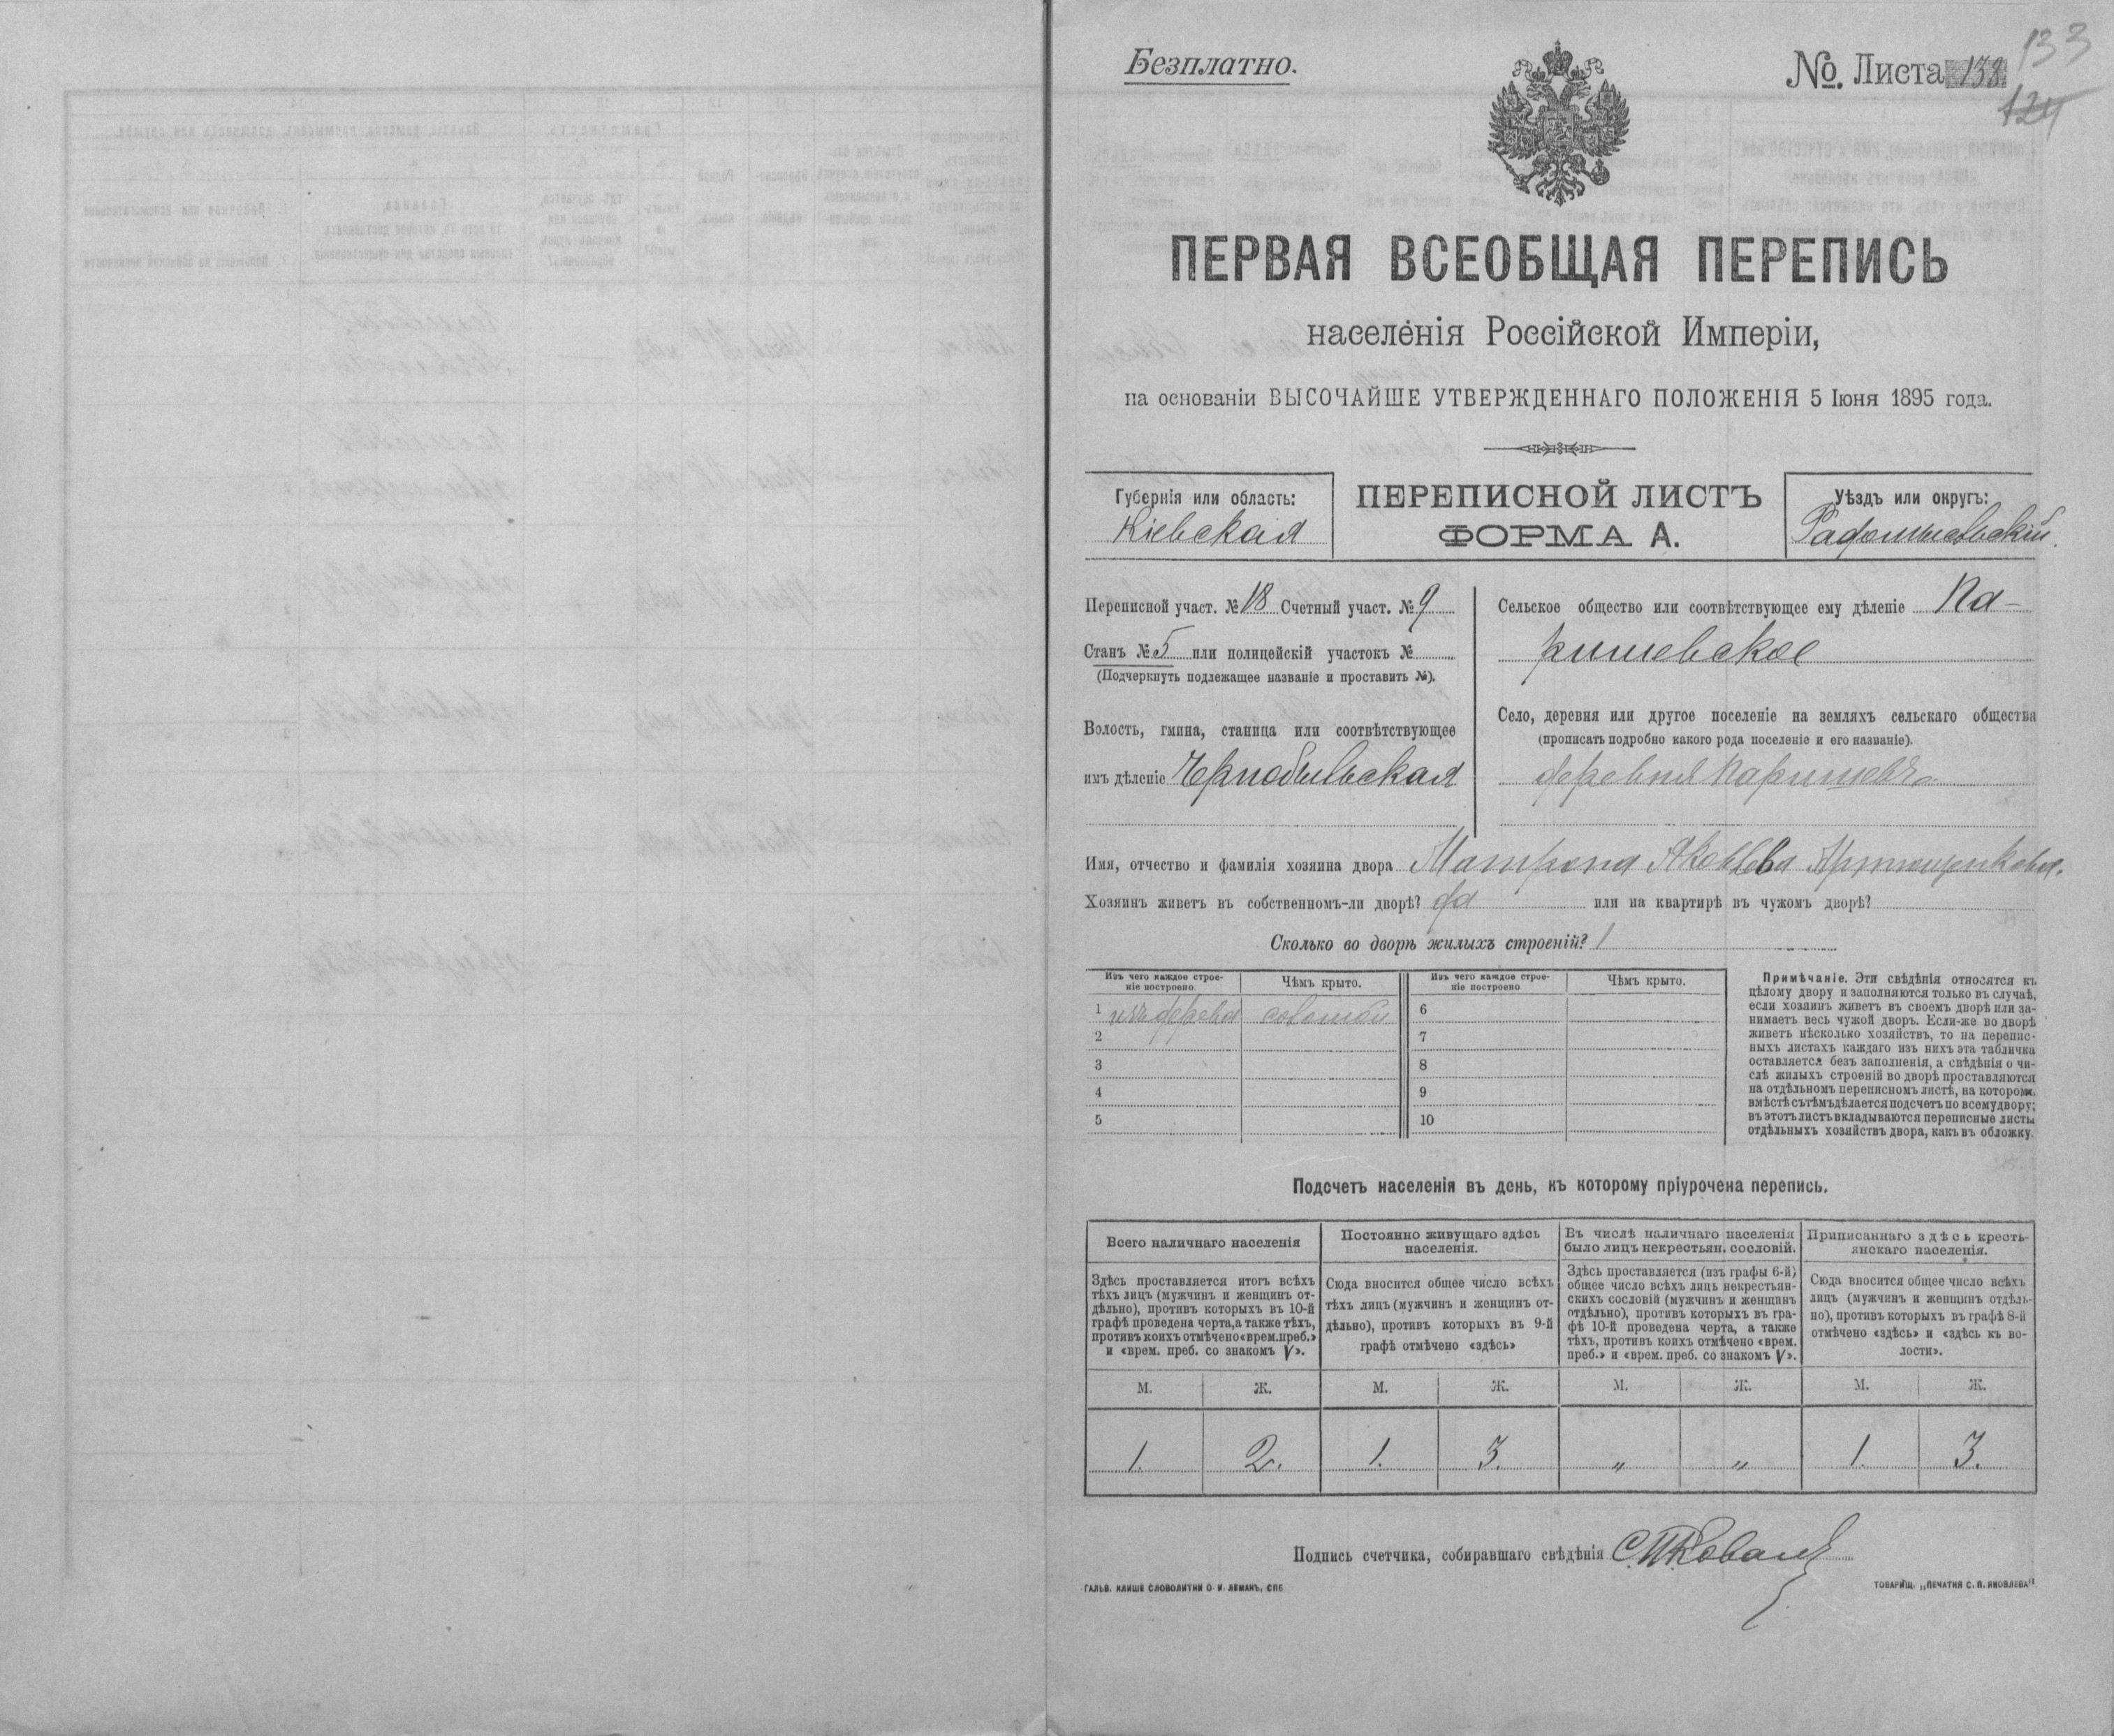 Безплатно.
№ Листа 138
133
124
ПЕРВАЯ ВСЕОБЩАЯ ПЕРЕПИСЬ
населенія Россійской Имперіи,
на основаніи ВЫСОЧАЙШЕ УТВЕРЖДЕННАГО ПОЛОЖЕНІЯ 5 Іюня 1895 года.
Губернія или область:
Кіевская
ПЕРЕПИСНОЙ ЛИСТЪ
ФОРМА А.
Уѣздъ или округъ:
Радомысльскій.
Переписной участ. № 18 Счетный участ. № 9
Станъ № 5 или полицейскій участокъ №
(Подчеркнуть подлежащее названіе и проставить №).
Волость, гмина, станица или соотвѣтствующее
имъ дѣленіе Чернобыльская
Сельское общество или соотвѣтствующее ему дѣленіе Па-
ришевское
Село, деревня или другое поселеніе на земляхъ сельскаго общества
(прописать подробно какого рода поселеніе и его названіе).
деревня Паришевъ
Имя, отчество и фамилія хозяина двора Матрона Яковлева
Хозяинъ живетъ въ собственномъ-ли дворѣ? да или на квартирѣ въ чужомъ дворѣ?
Сколько во дворѣ жилыхъ строеній? 1
Изъ чего каждое строе-
ніе построено
Чѣмъ крыто.
Изъ чего каждое строе-
ніе построено
Чѣмъ крыто.
1 изъ дерева соломой 6
2 7
3 8
4 9
5 10
Примѣчаніе. Эти свѣдѣнія относятся къ
цѣлому двору и заполняются только въ случаѣ,
если хозяинъ живетъ въ своемъ дворѣ или за-
нимаетъ весь чужой дворъ. Если-же во дворѣ
живетъ нѣсколько хозяйствъ, то на перепис-
ныхъ листахъ каждаго изъ нихъ эта табличка
оставляется безъ заполненія, а свѣдѣнія о чи-
слѣ жилыхъ строеній во дворѣ проставляются
на отдѣльномъ переписномъ листѣ, на которомъ
вмѣстѣ съ тѣмъ дѣлается подсчетъ по всему двору;
въ этотъ листъ вкладываются переписные листы
отдѣльныхъ хозяйствъ двора, какъ въ обложку.
Подсчетъ населенія въ день, къ которому пріурочена перепись.
Всего наличнаго населенія
Здѣсь проставляется итогъ всѣхъ
тѣхъ лицъ (мужчинъ и женщинъ от-
дѣльно), противъ которыхъ въ 10-й
графѣ проведена черта, а также тѣхъ,
противъ коихъ отмѣчено «врем. преб.»
и «врем. преб. со знакомъ V».
Постоянно живущаго здѣсь
населенія.
Сюда вносится общее число всѣхъ
тѣхъ лицъ (мужчинъ и женщинъ от-
дѣльно), противъ которыхъ въ 9-й
графѣ отмѣчено «здѣсь»
Въ числѣ наличнаго населенія
было лицъ некрестьян. сословій.
Здѣсь проставляется (изъ графы 6-й)
общее число всѣхъ лицъ некрестьян-
скихъ сословій (мужчинъ и женщинъ
отдѣльно), противъ которыхъ въ гра-
фѣ 10-й проведена черта, а также
тѣхъ, противъ коихъ отмѣчено «врем.
преб.» и «врем. преб. со знакомъ V».
Приписаннаго здѣсь кресть-
янскаго населенія.
Сюда вносится общее число всѣхъ
лицъ (мужчинъ и женщинъ отдѣль-
но), противъ которыхъ въ графѣ 8-й
отмѣчено «здѣсь» и «здѣсь къ во-
лости».
М. Ж. М. Ж. М. Ж. М. Ж.
1. 2. 1. 3. „ „ 1. 3.
Подпись счетчика, собиравшаго свѣдѣнія
ГАЛЬВ. КЛИШЕ СЛОВОЛИТНИ О. И. ЛЕМАНЪ, СПБ
ТОВАРИЩ. „ПЕЧАТНЯ С. П. ЯКОВЛЕВА".